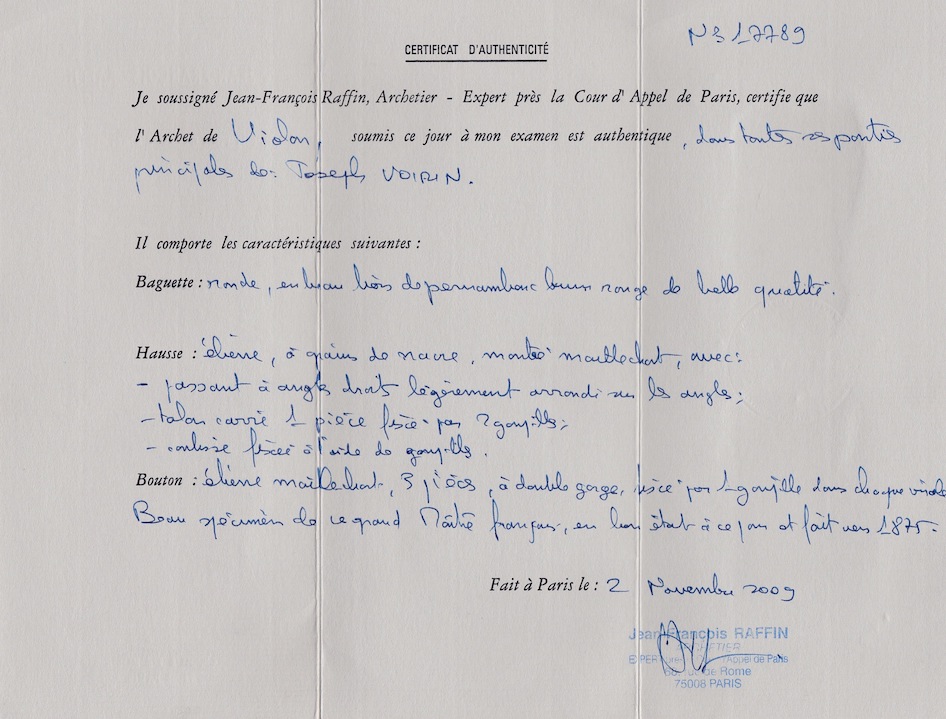 N° 17789
CERTIFICAT D'AUTHENTICITÉ
Je soussigné Jean-François Raffin, Archetier - Expert près la Cour d'Appel de Paris, certifie que
l'Archet de Violon, soumis ce jour à mon examen est authentique, dans toutes ses parties
principales de: Joseph VOIRIN.
Il comporte les caractéristiques suivantes :
Baguette : ronde, en beau bois de pernambouc brun rouge de belle qualité.
Hausse : ébène, à grains de nacre, montée maillechort, avec:
- passant à angles droits légèrement arrondi sur les angles;
- talon carré 1 pièce fixée par 2 goupilles;
- coulisse fixée à l'aide de goupilles.
Bouton : ébène maillechort, 3 pièces, à double gorge, fixée par 1 goupille dans chaque virole
Beau spécimen de ce grand Maître français, en bon état à ce jour et fait vers 1875.
Fait à Paris le : 2 Novembre 2009
Jean-François RAFFIN
ARCHETIER
EXPERT près la Cour d'Appel de Paris
68, rue de Rome
75008 PARIS